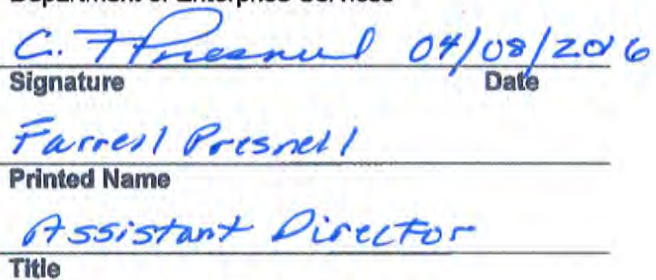 Department of Enterprise Services
C. F Presnell 04/08/2016
Signature Date
Farrell Presnell
Printed Name
Assistant Director
Title